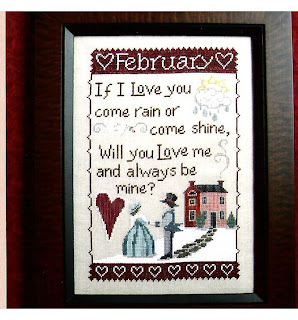 February
If I Love you
come rain or
come shine,
Will you Love me
and always be
mine?